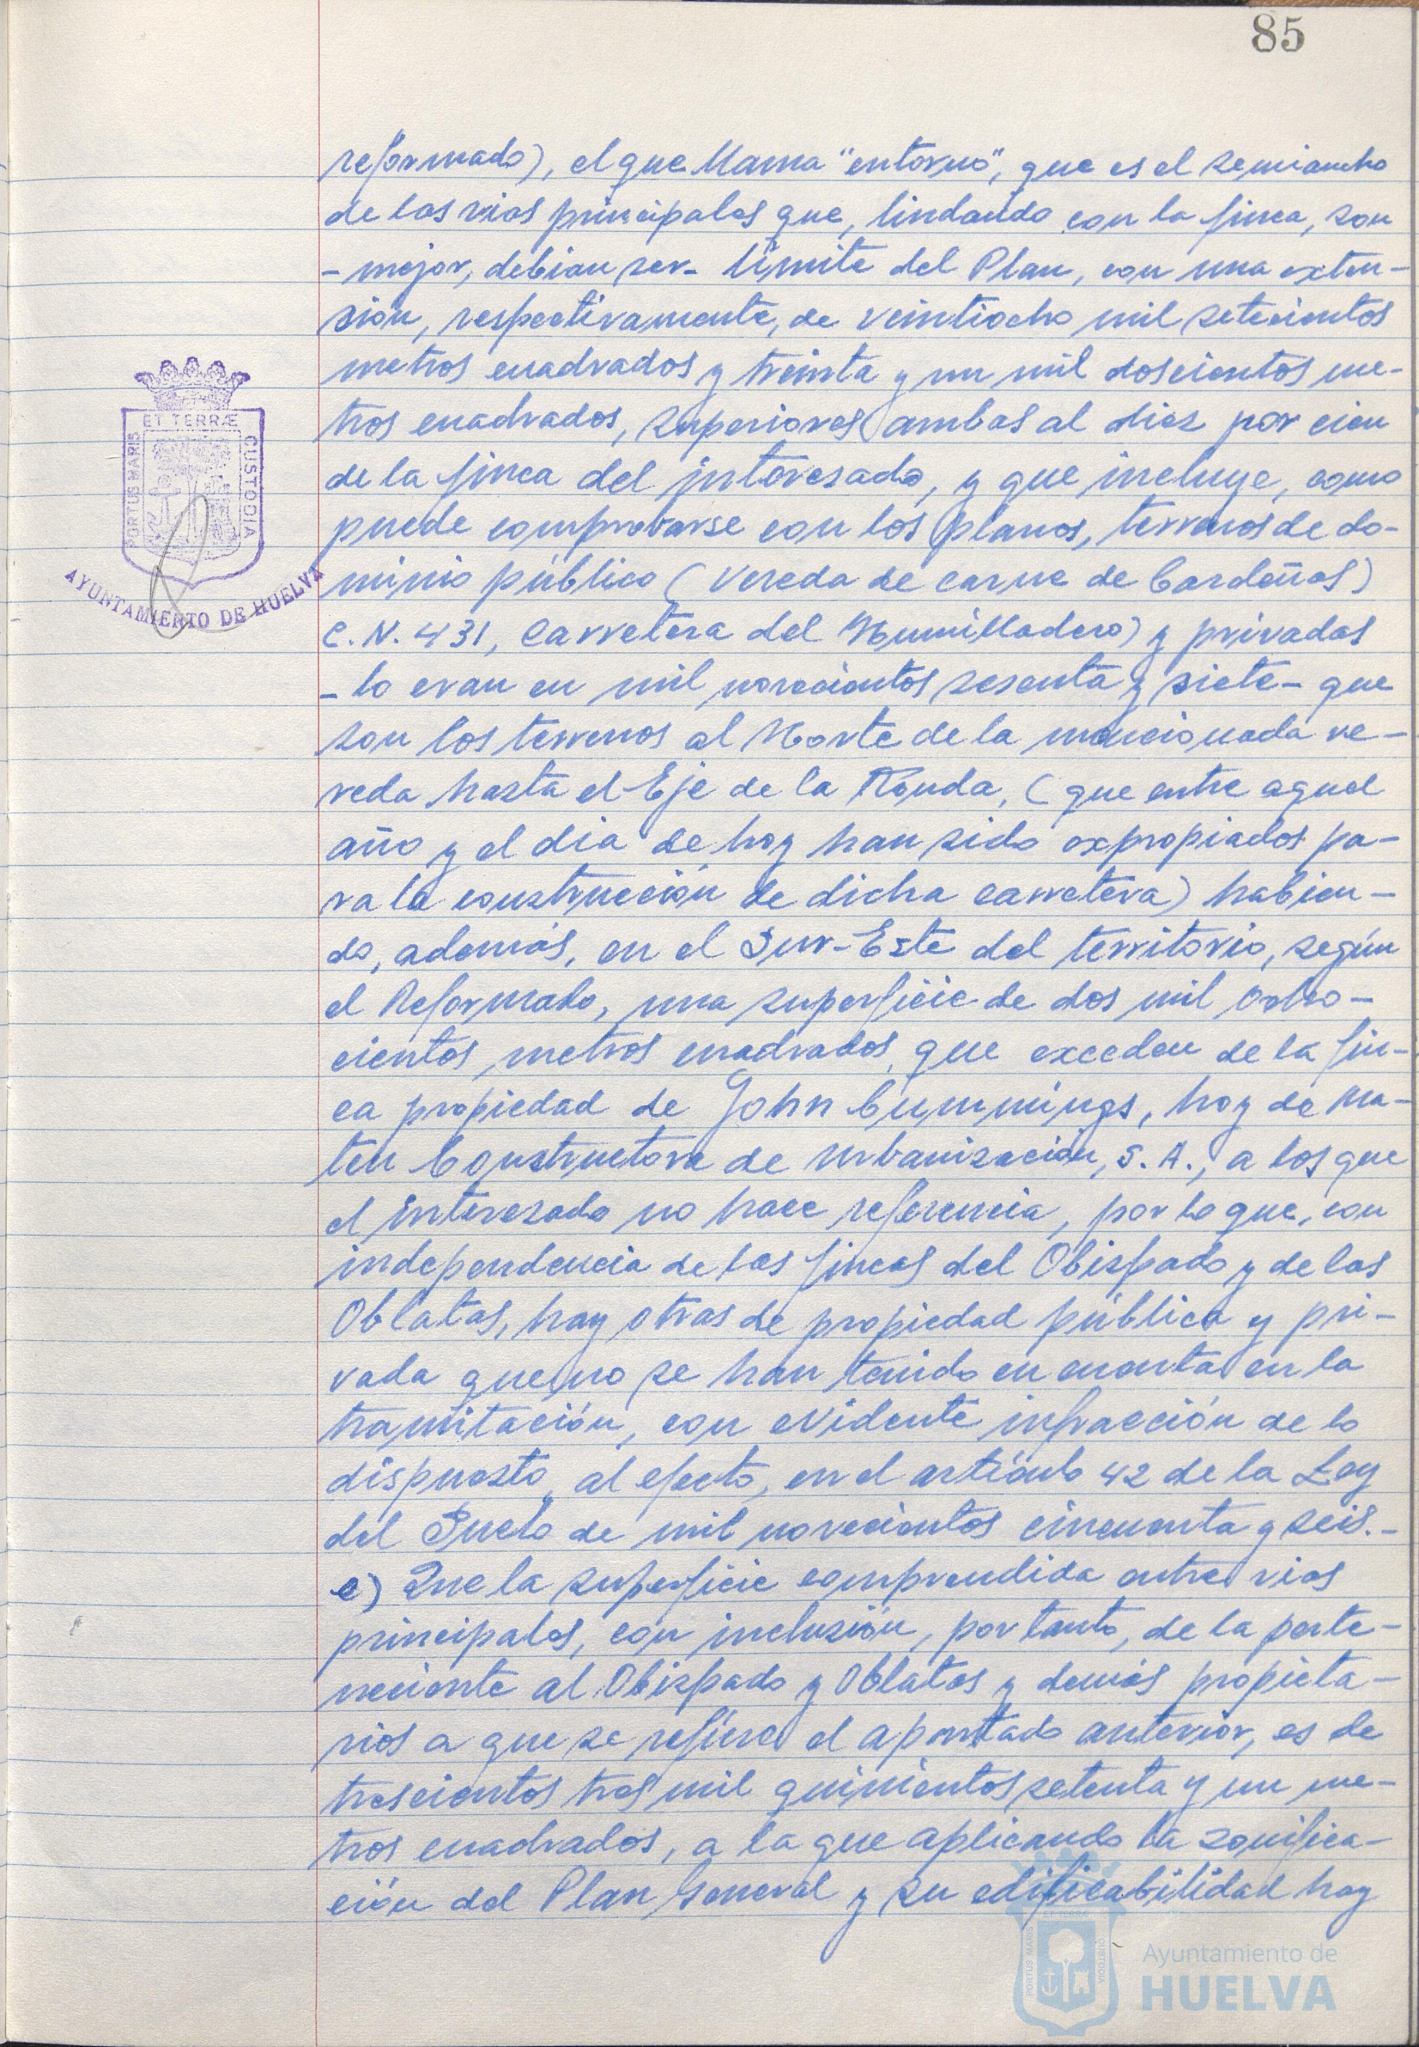 85
reformado), el que llama "entorno", que es el semiancho
de las vias principales que, lindando con la finca, son
- mejor, debian ser - límite del Plan, con una exten-
sión, respectivamente, de veintiocho mil setecientos
metros cuadrados y treinta y un mil doscientos me-
tros cuadrados, superiores ambas al diez por cien
de la finca del interesado, y que incluye, como
puede comprobarse con los planos, terrenos de do-
minio público (Vereda de carne de Cardeñas)
C.N. 431, Carretera del Humilladero) y privadas
- lo eran en mil novecientos sesenta y siete - que
son los terrenos al Norte de la mencionada ve-
reda hasta el Eje de la Ronda, (que entre aquel
año y el dia de hoy han sido expropiados pa-
ra la construcción de dicha carretera) habien-
do, además, en el Sur-Este del territorio, según
el Reformado, una superficie de dos mil ocho-
cientos, metros cuadrados, que exceden de la fin-
ca propiedad de John Cummings, hoy de Ma-
ten Constructora de Urbanización, S.A., a los que
el interesado no hace referencia, por lo que, con
independencia de las fincas del Obispado y de las
Oblatas, hay otras de propiedad pública y pri-
vada que no se han tenido en cuenta en la
tramitación, con evidente infracción de lo
dispuesto, al efecto, en el artículo 42 de la Ley
del Suelo de mil novecientos cincuenta y seis.-
c) Que la superficie comprendida entre vias
principales, con inclusión, por tanto, de la perte-
neciente al Obispado y Oblatas y demás propieta-
rios a que se refiere el apartado anterior, es de
trescientos tres mil quinientos setenta y un me-
tros cuadrados, a la que aplicando la zonifica-
ción del Plan General y su edificabilidad hay
ET TERRÆ
PORTUS MARIS
CUSTODIA
AYUNTAMIENTO DE HUELVA
Ayuntamiento de
HUELVA